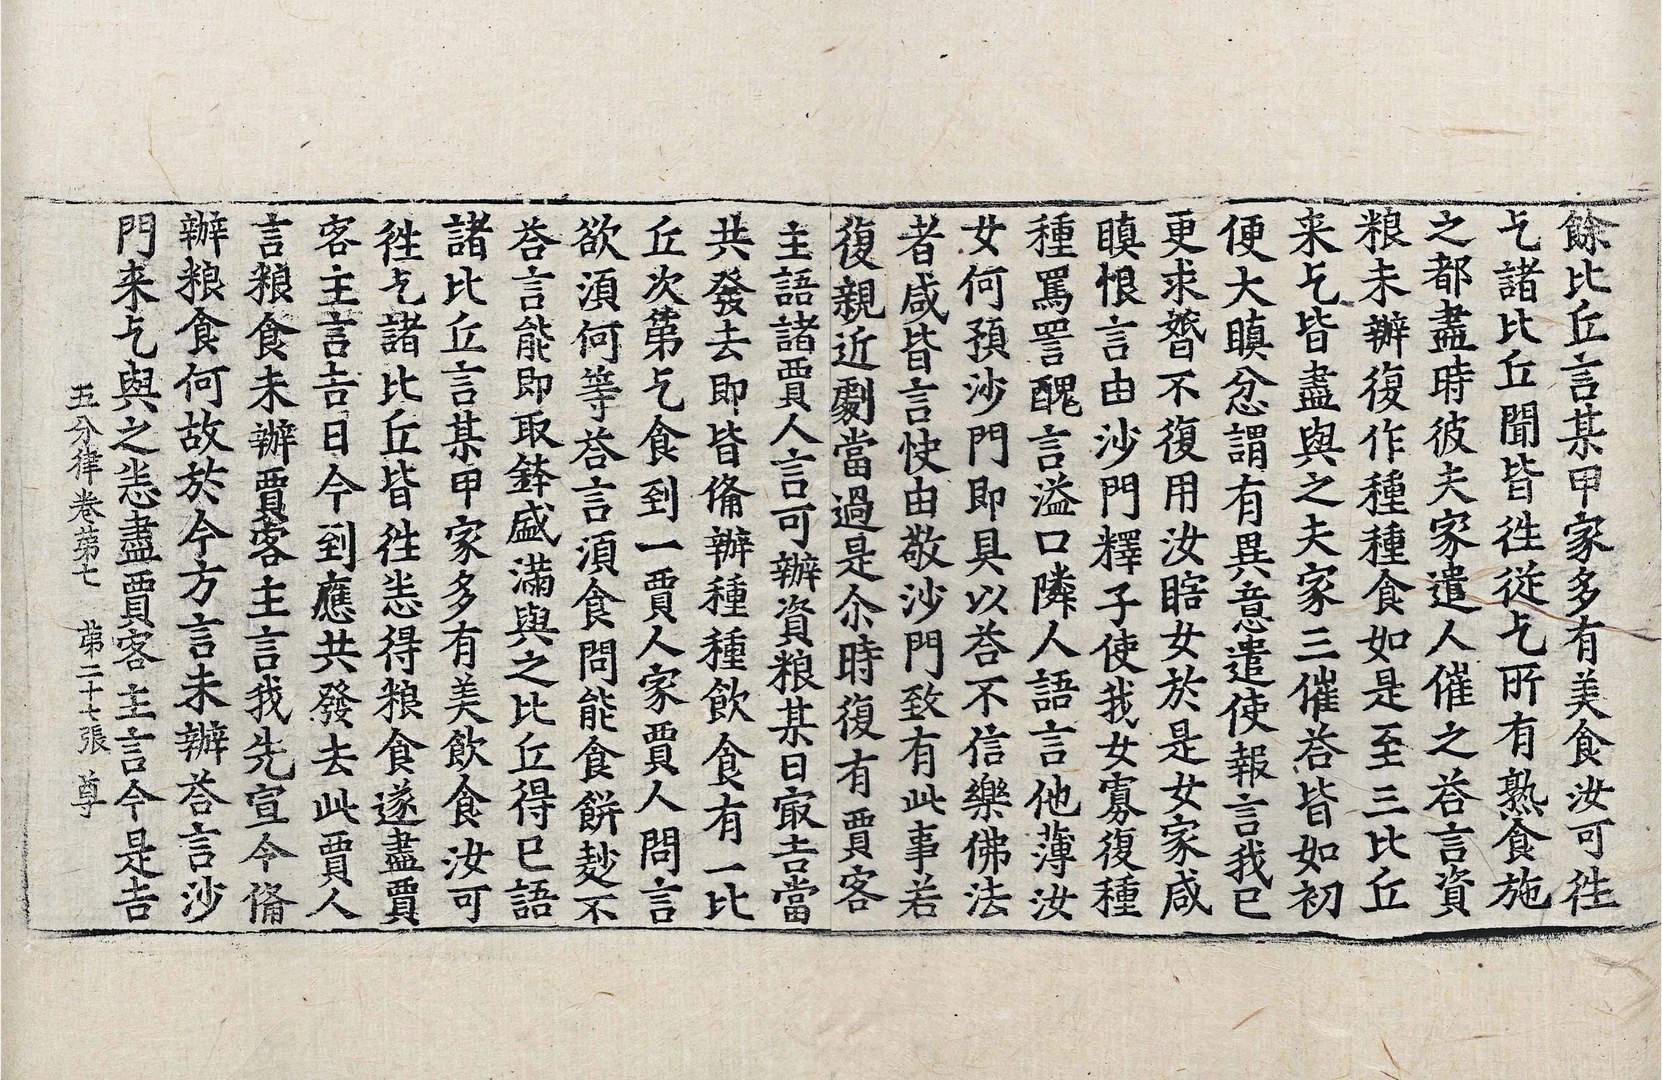 餘比丘言某甲家多有美食汝可徃
乞諸比丘聞皆徃從乞所有熟食施
之都盡時彼夫家遣人催之荅言資
粮未辦復作種種食如是至三比丘
来乞皆盡與之夫家三催荅皆如初
便大瞋忿謂有異意遣使報言我已
更求婚不復用汝瞎女於是女家咸
瞋恨言由沙門釋子使我女寡復種
種罵詈醜言溢口隣人語言他薄汝
女何預沙門即具以荅不信樂佛法
者咸皆言快由敬沙門致有此事若
復親近劇當過是尒時復有賈客
主語諸賈人言可辦資粮某日㝡吉當
共發去即皆俻辦種種飲食有一比
丘次第乞食到一賈人家賈人問言
欲湏何等荅言湏食問能食餅麨不
荅言能即取鉢盛滿與之比丘得已語
諸比丘言某甲家多有美飲食汝可
徃乞諸比丘皆徃恙得粮食遂盡賈
客主言吉日今到應共發去此賈人
言粮食未辦賈客主言我先宣令俻
辦粮食何故於今方言未辦荅言沙
門来乞與之恙盡賈客主言今是吉
五分律卷第七　第二十七張　尊